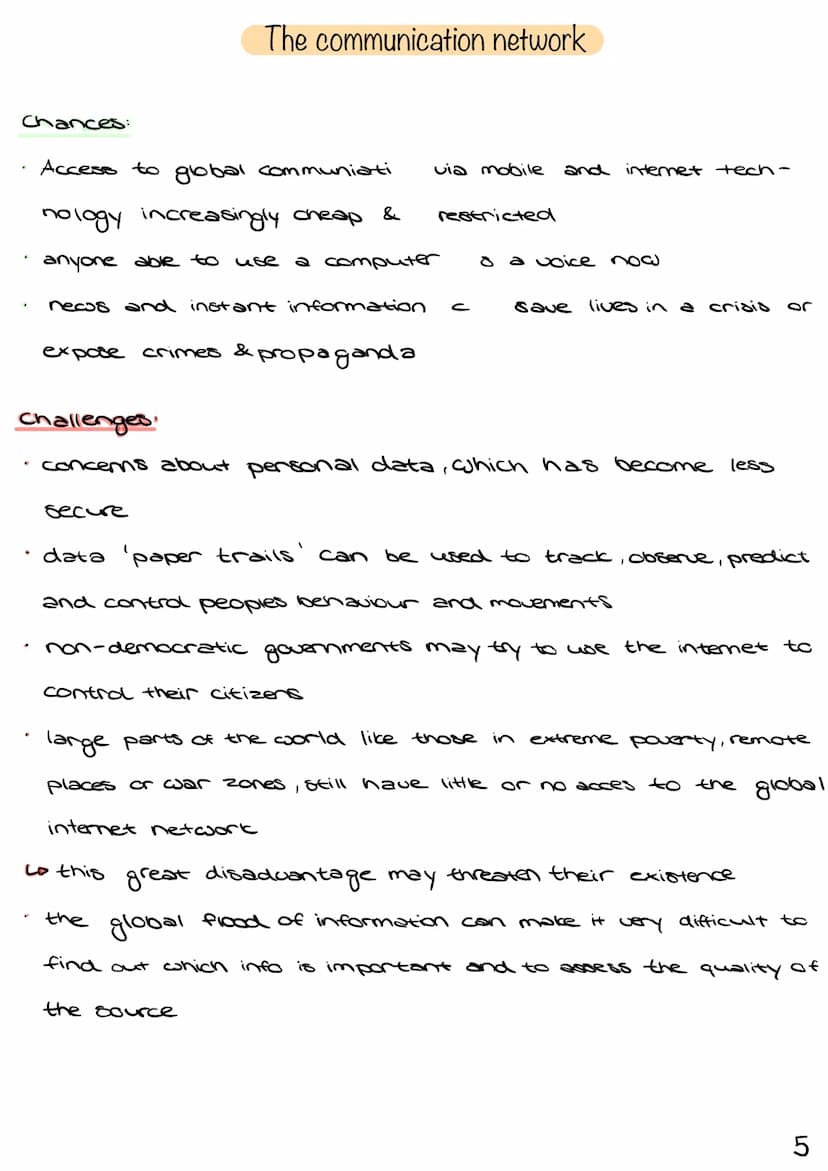 The communication network
Chances:
· Access to global communiati via mobile and internet tech-
nology increasingly cheap & restricted
· anyone able to use a computer s a voice now
· news and instant information c save lives in a crisis or
expose crimes & propaganda
Challenges:
· concerns about personal data, which has become less
secure
· data 'paper trails' can be used to track, observe, predict
and control peoples behaviour and movements
· non-democratic governments may try to use the internet to
control their citizens
· large parts of the world like those in extreme poverty, remote
places or war zones, still have little or no acces to the global
internet network
↳ this great disadvantage may threaten their existence
· the global flood of information can make it very difficult to
find out which info is important and to assess the quality of
the source
5